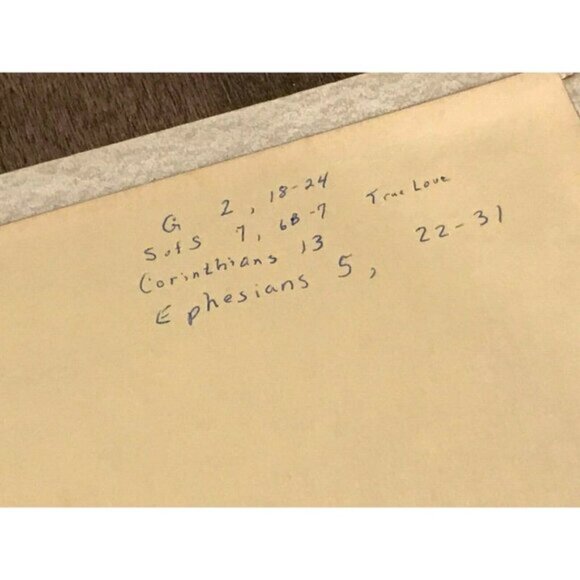 G 2, 18-24
S of S 7, 6B-7 True Love
Corinthians 13
Ephesians 5, 22-31